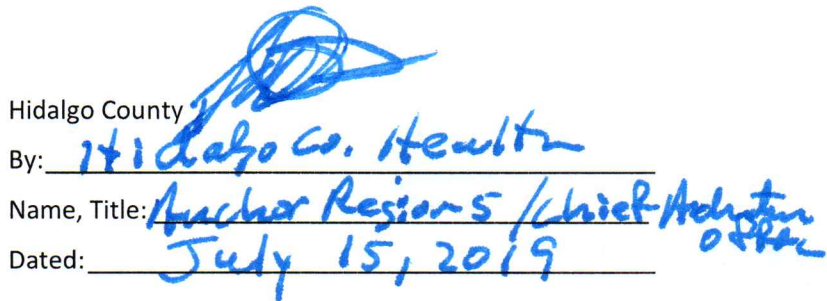 Hidalgo County
By: Hidalgo Co. Health
Name, Title: Anchor Region 5 / Chief
Dated: July 15, 2019